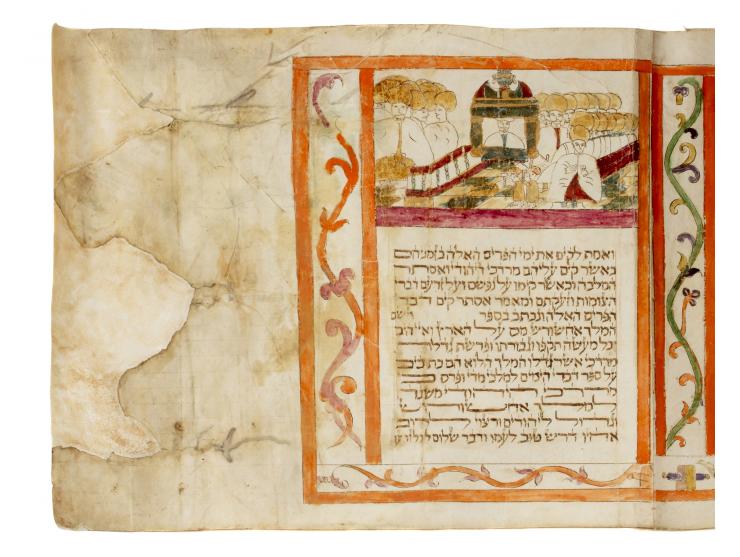 ואמת לקים את ימי הפרים האלה בזמניהם
כאשר קים עליהם מרדכי היהודי ואסתר
המלכה וכאשר קימו על נפשם ועל זרעם דברי
הצומות וזעקתם ומאמר אסתר קים דברי
הפרים האלה ונכתב בספר וישם
המלך אחשורש מס על הארץ ואיי הים
וכל מעשה תקפו וגבורתו ופרשת גדלת
מרדכי אשר גדלו המלך הלוא הם כתובים
על ספר דברי הימים למלכי מדי ופרס כי
מרדכי היהודי משנה
למלך אחשורוש
וגדול ליהודים ורצוי לרוב
אחיו דרש טוב לעמו ודבר שלום לכל זרעו